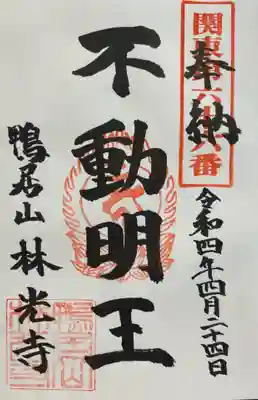 奉納
関東
番
令和四年四月二十四日
不動明王
鴨居山林光寺